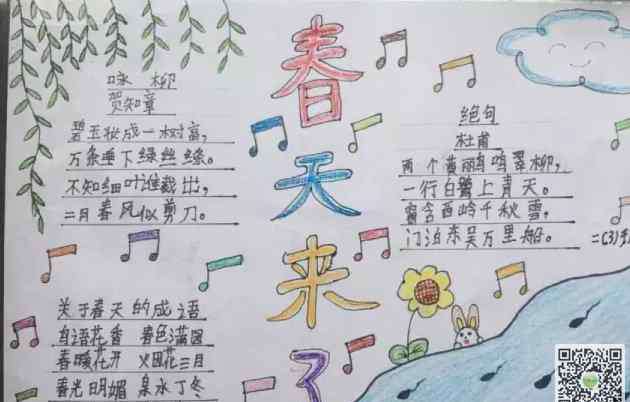 春天来了
咏 柳
贺知章
碧玉妆成一树高，
万条垂下绿丝绦。
不知细叶谁裁出，
二月春风似剪刀。
关于春天的成语
鸟语花香 春色满园
春暖花开 烟花三月
春光明媚 泉水丁冬
绝句
杜甫
两个黄鹂鸣翠柳，
一行白鹭上青天。
窗含西岭千秋雪，
门泊东吴万里船。
二(3)